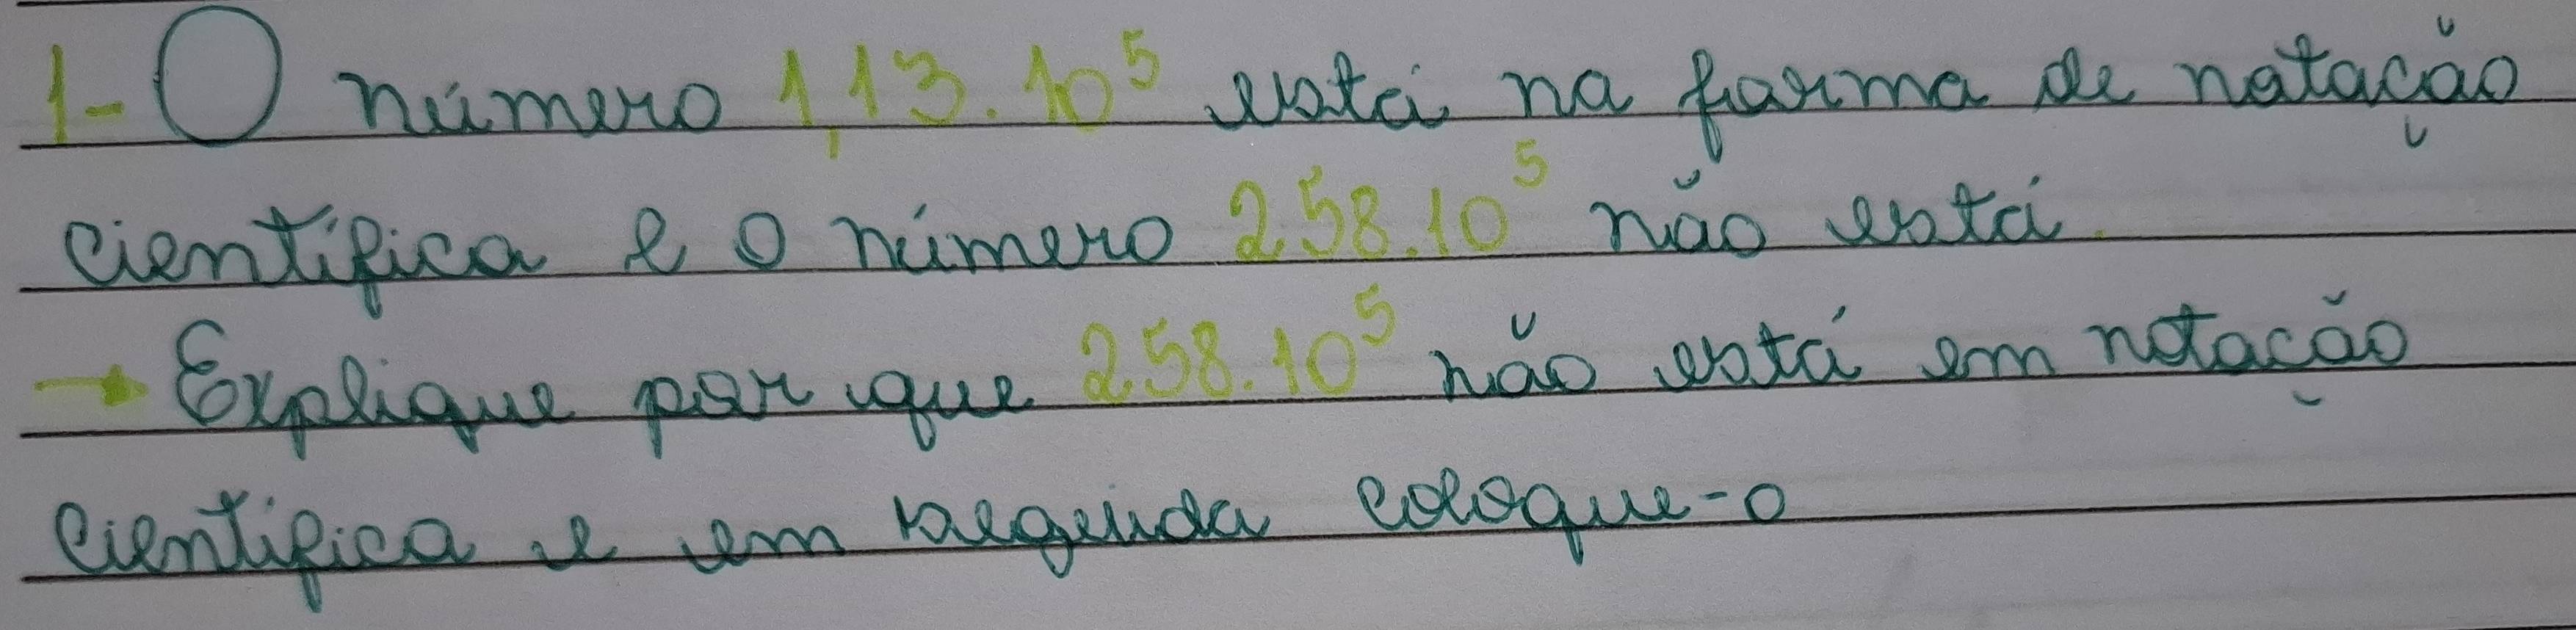 1- O número 1,13 . 10⁵ está na forma de notação
científica e o número 258.10⁵ não está.
→ Explique por que 258.10⁵ não está em notação
científica e em seguida coloque-o